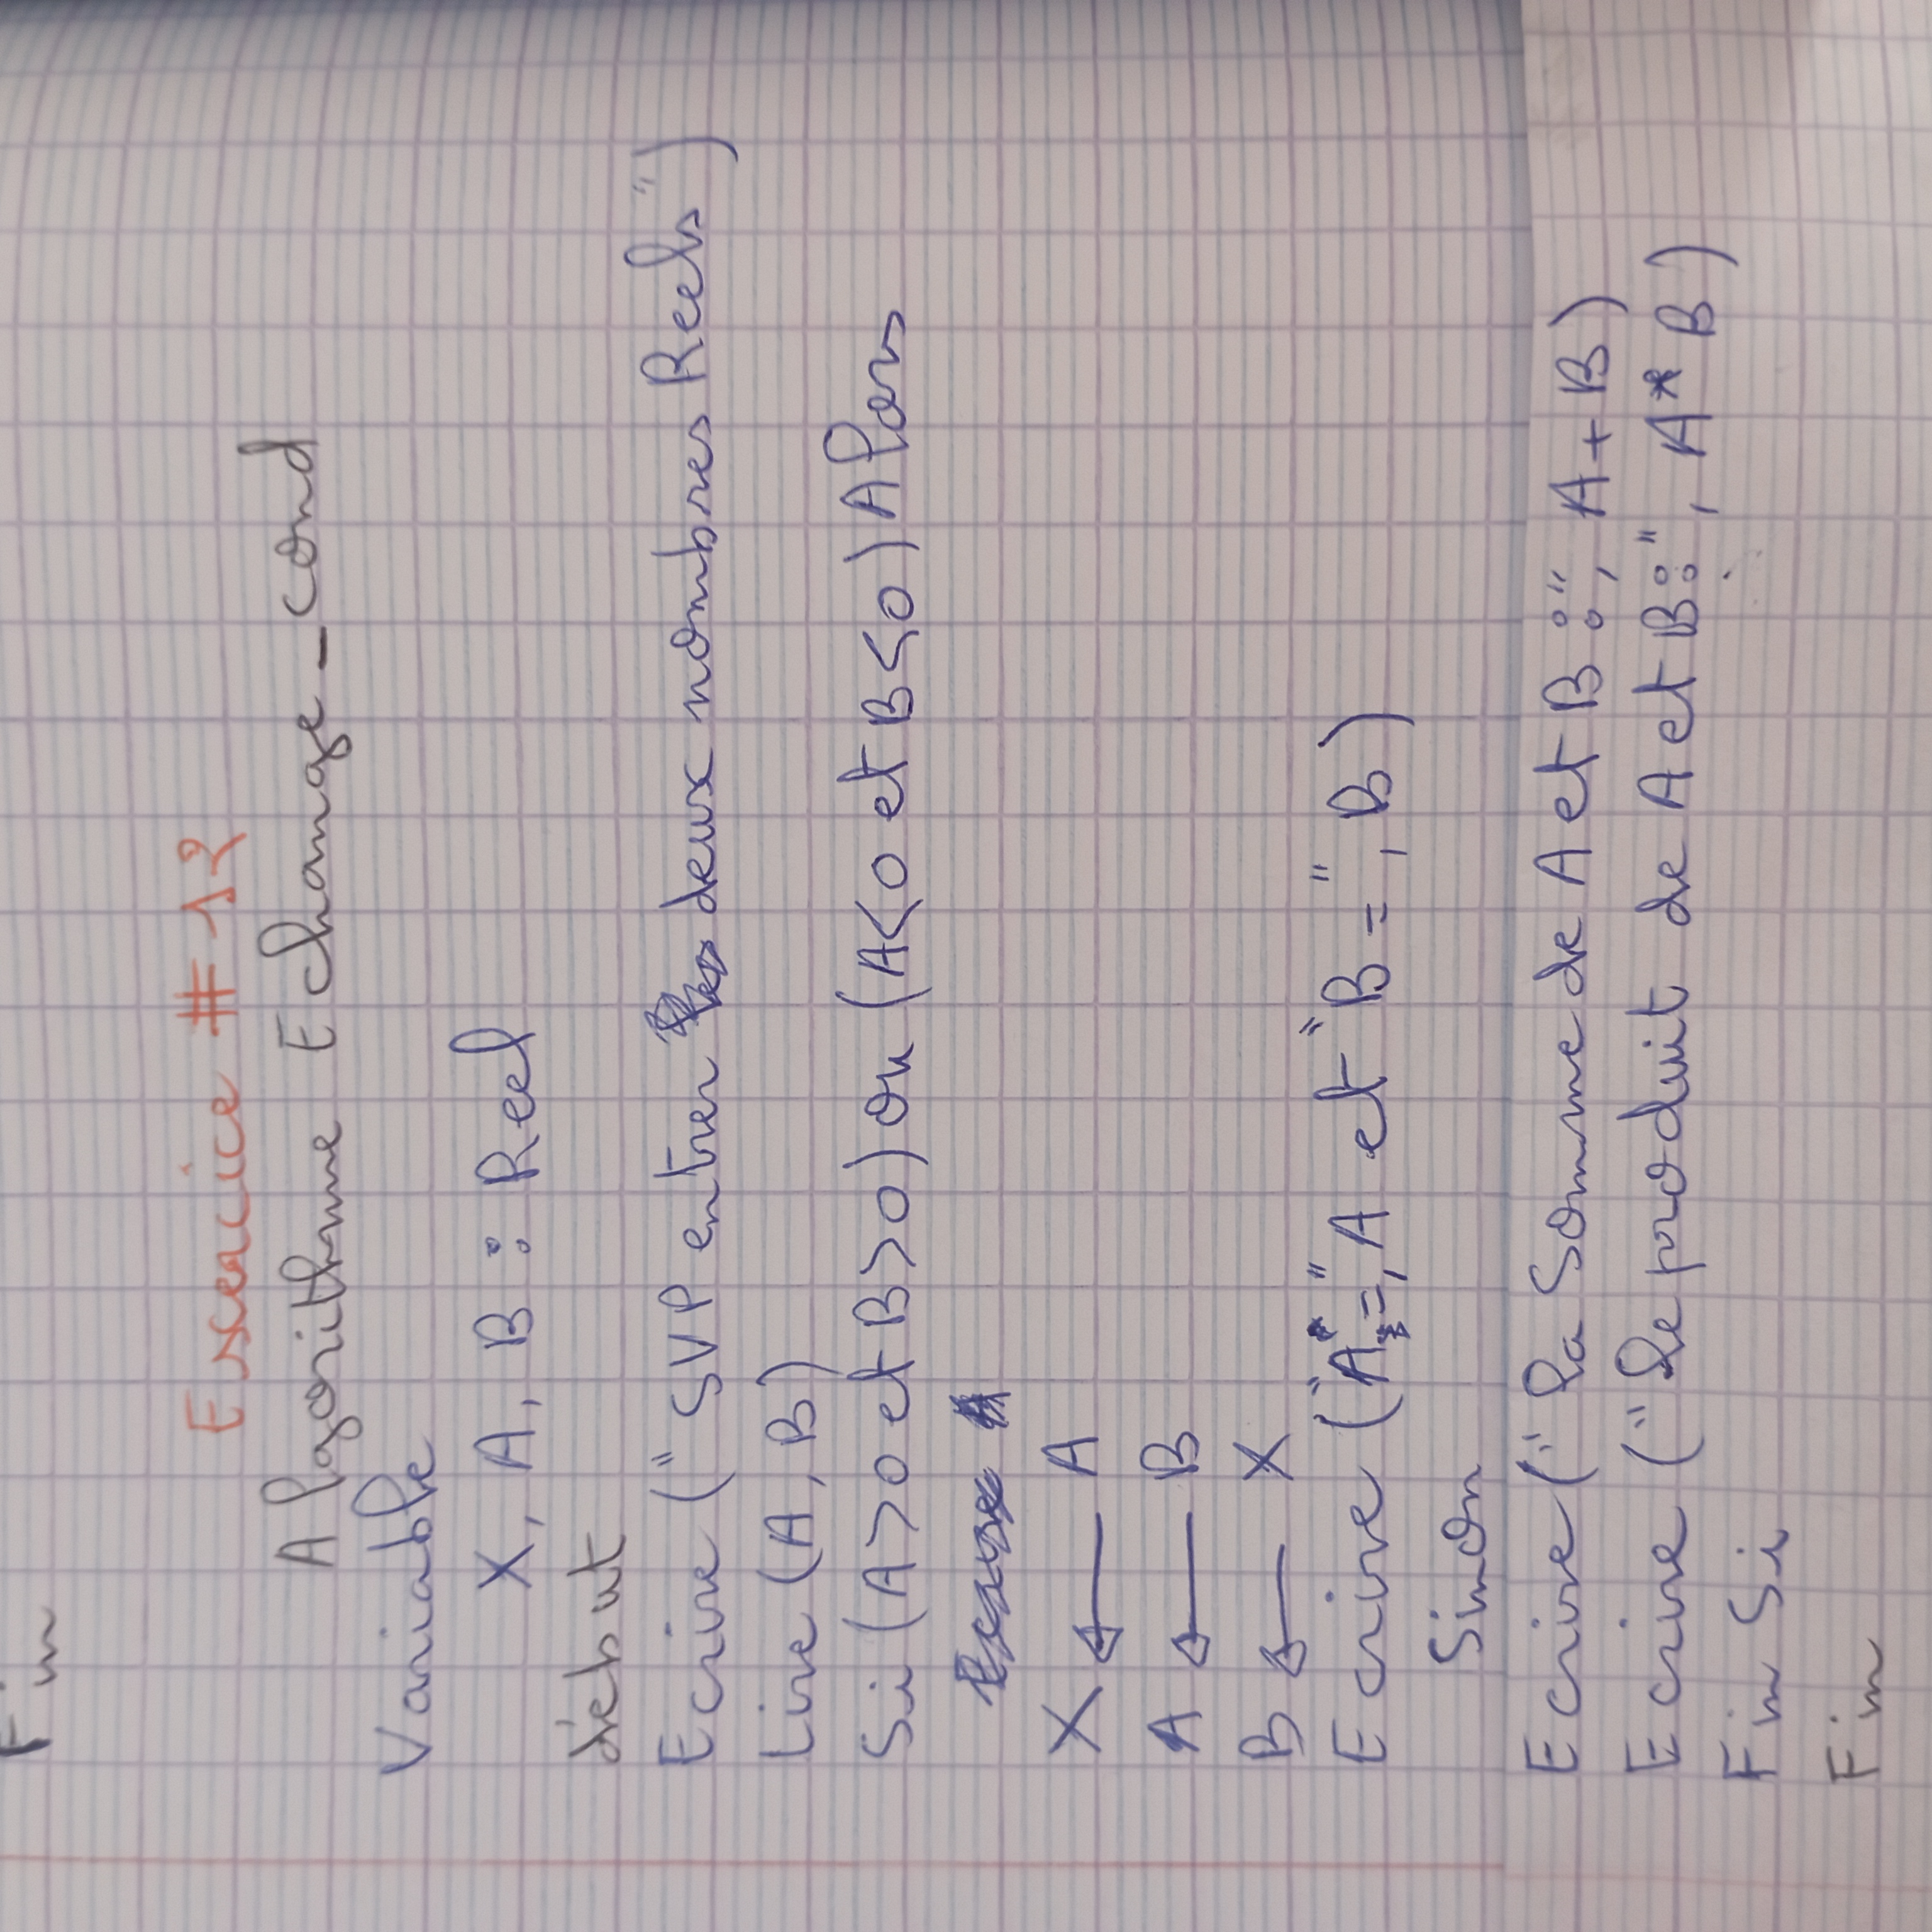 Fin
Exercice #12
Algorithme Echange_cond
Variable
X, A, B : Reel
debut
Ecrire ("SVP entrer deux nombres Reels")
Lire (A, B)
Si (A>0 et B>0) ou (A<0 et B<0) Alors
X ← A
A ← B
B ← X
Ecrire ("A =", A et "B = ", B)
Sinon
Ecrire ("la Somme de A et B :", A+B)
Ecrire ("le produit de A et B :", A*B)
Fin Si
Fin